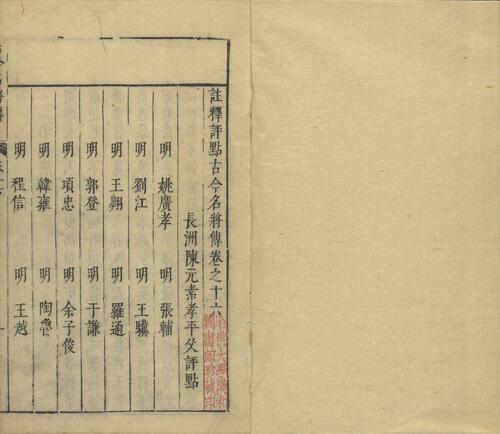 註釋評點古今名將傳卷之十六
長洲陳元素孝平父評點
明 姚廣孝 明 張輔
明 劉江 明 王驥
明 王翺 明 羅通
明 郭登 明 于謙
明 項忠 明 余子俊
明 韓雍 明 陶魯
明 程信 明 王越